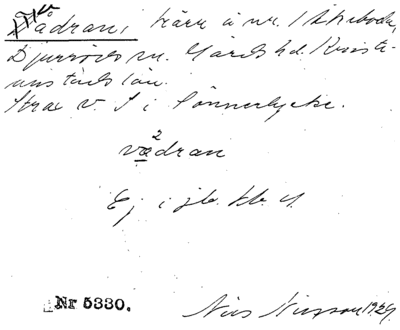 Vådran, kärr å nr. 1 Ekeboda,
Djurröds sn. Gärds hd. Kristi-
anstads län.
Strax v. S i Sönnerlycke.
2
vadran
Ej i jb. kb. 
Nr 5330.
Nils Nilsson 1929